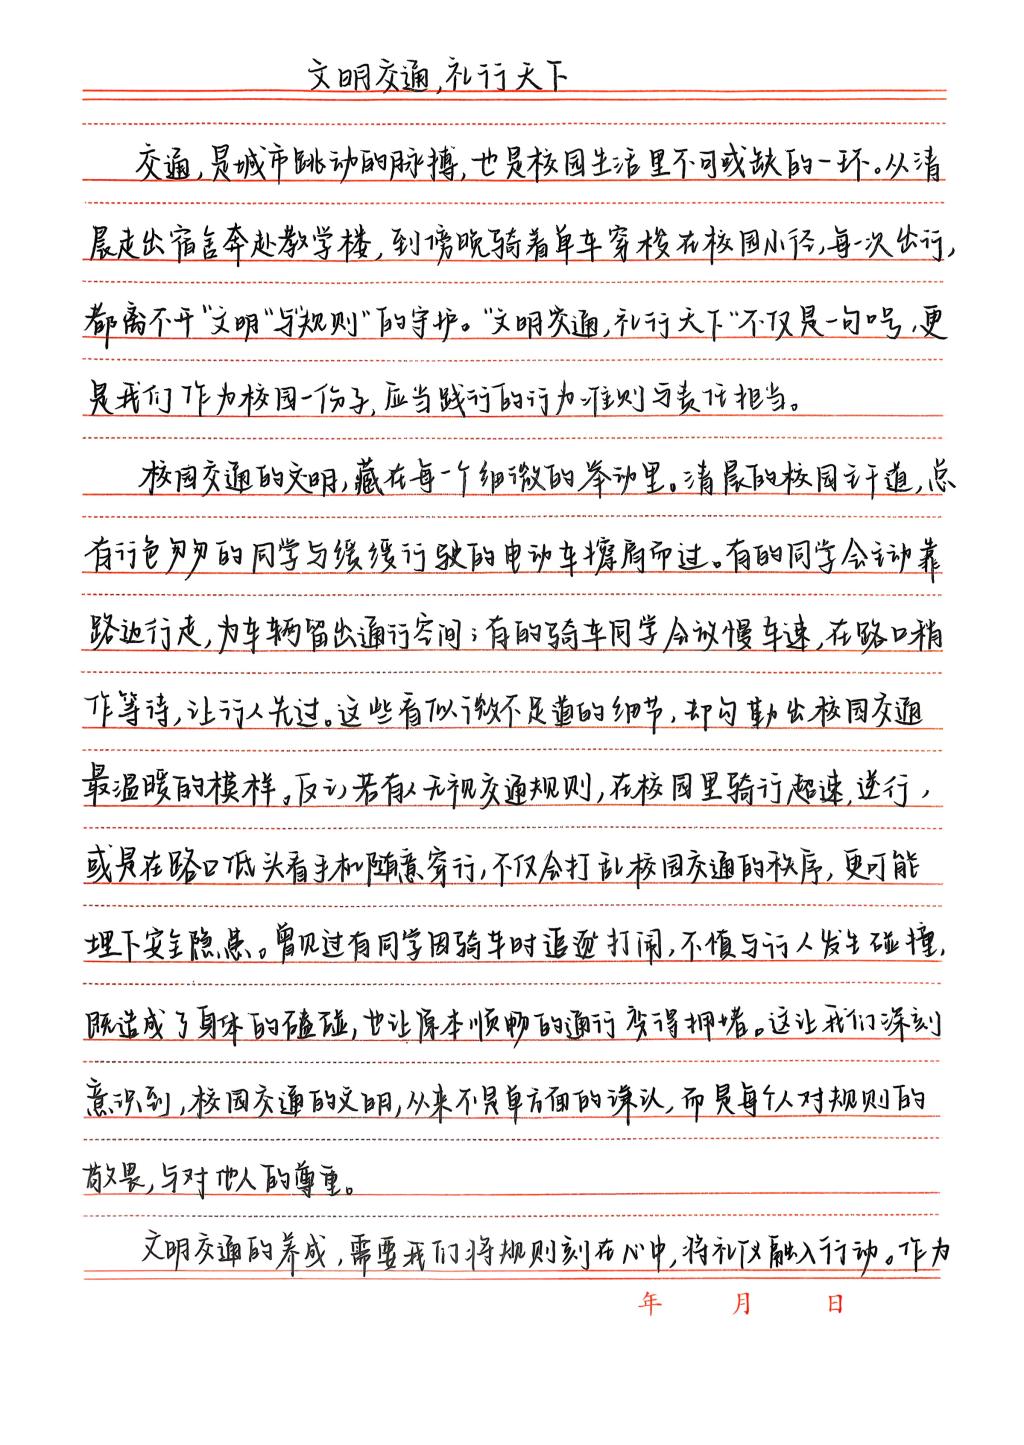 文明交通,礼行天下
交通,是城市跳动的脉搏,也是校园生活里不可或缺的一环。从清
晨走出宿舍奔赴教学楼,到傍晚骑着单车穿梭在校园小径,每一次出行,
都离不开“文明”与“规则”的守护。“文明交通,礼行天下”不仅是一句口号,更
是我们作为校园一份子,应当践行的行为准则与责任担当。
校园交通的文明,藏在每一个细微的举动里。清晨的校园主干道,总
有行色匆匆的同学与缓缓行驶的电动车擦肩而过。有的同学会主动靠
路边行走,为车辆留出通行空间;有的骑车同学会放慢车速,在路口稍
作等待,让行人先过。这些看似微不足道的细节,却勾勒出校园交通
最温暖的模样。反之,若有人无视交通规则,在校园里骑行超速,逆行,
或是在路口低头看手机随意穿行,不仅会打乱校园交通的秩序,更可能
埋下安全隐患。曾见过有同学因骑车时追逐打闹,不慎与行人发生碰撞,
既造成了身体的磕碰,也让原本顺畅的通行变得拥堵。这让我们深刻
意识到,校园交通的文明,从来不是单方面的谦让,而是每个人对规则的
敬畏,与对他人的尊重。
文明交通的养成,需要我们将规则刻在心中,将礼仪融入行动。作为
年 月 日